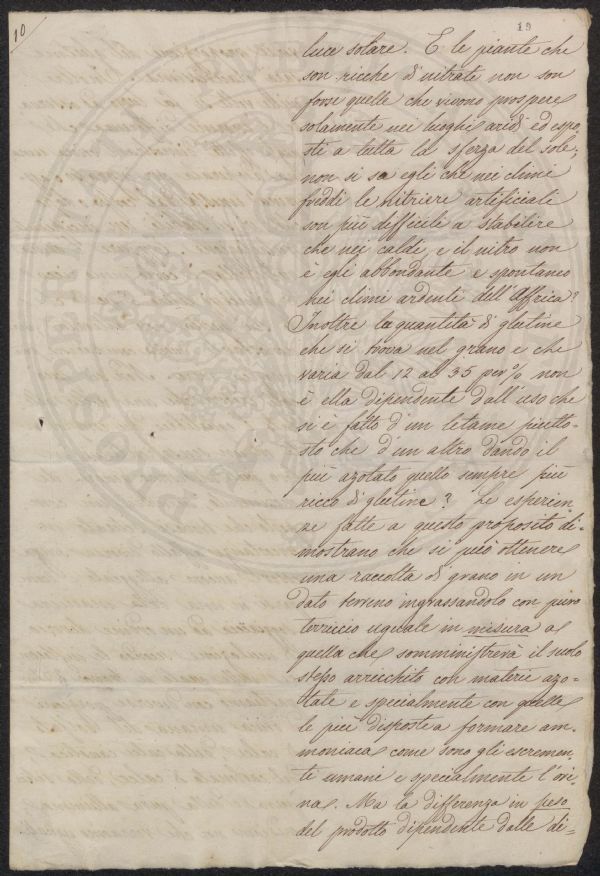 10
19
luce solare. E le piante che
son ricche di nitrate non son
forse quelle che vivono prospere
solamente nei luoghi aridi ed espo
sti a tutta la sferza del sole;
non si sa egli che nei climi
freddi le nitriere artificiali
son più difficili a stabilire
che nei caldi, e il nitro non
è egli abbondante e spontaneo
nei climi ardenti dell'Affrica?
Inoltre la quantità di glutine
che si trova nel grano e che
varia dal 12 al 35 per % non
è ella dipendente dall'uso che
si è fatto d'un letame piutto-
sto che d'un altro dando il
più azotato quello sempre più
ricco di glutine? Le esperien
ze fatte a questo proposito di-
mostrano che si può ottenere
una raccolta di grano in un
dato terreno ingrassandolo con puro
terriccio uguale in misura a
quella che somministrerà il suolo
stesso arricchito con materie azo-
tate e specialmente con quelle
le più disposte a formare am-
moniaca come sono gli escremen-
ti umani e specialmente l'ori-
na. Ma la differenza in peso
del prodotto dipendente dalle di-